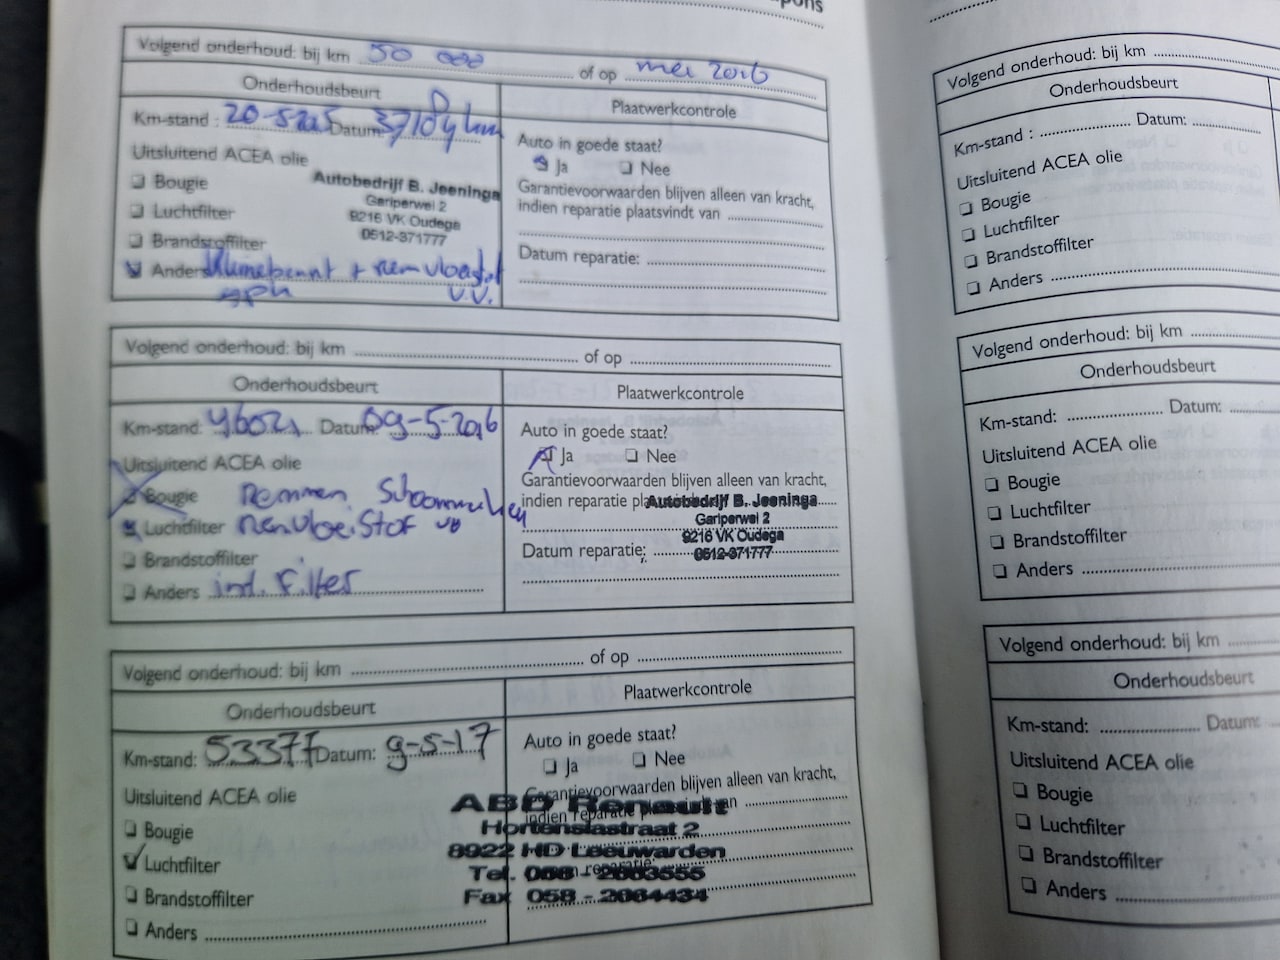 Volgend onderhoud: bij km 50 000 of op mei 2016
Onderhoudsbeurt
Plaatwerkcontrole
Km-stand : 20-5 Datum:
Uitsluitend ACEA olie
Bougie
Luchtfilter
Brandstoffilter
Anders + remvloeistof
v.v.
Autobedrijf B. Jeeninga
Gariperwei 2
9216 VK Oudega
0512-371777
Auto in goede staat?
Ja Nee
Garantievoorwaarden blijven alleen van kracht,
indien reparatie plaatsvindt van
Datum reparatie:
Volgend onderhoud: bij km of op
Onderhoudsbeurt
Plaatwerkcontrole
Km-stand: 46021 Datum: 09-5-2016
Uitsluitend ACEA olie
Bougie Remmen Schoonmaken
Luchtfilter remvloeistof
Brandstoffilter
Anders int. Filter
Auto in goede staat?
Ja Nee
Garantievoorwaarden blijven alleen van kracht,
indien reparatie
Autobedrijf B. Jeeninga
Gariperwei 2
9216 VK Oudega
0512-371777
Datum reparatie:
Volgend onderhoud: bij km of op
Onderhoudsbeurt
Plaatwerkcontrole
Km-stand: 53377 Datum: 9-5-17
Uitsluitend ACEA olie
Bougie
Luchtfilter
Brandstoffilter
Anders
Auto in goede staat?
Ja Nee
Garantievoorwaarden blijven alleen van kracht,
indien reparatie
ABD Renault
Hortensiastraat 2
8922 HD Leeuwarden
Tel. 058 -
Fax 058 -
Volgend onderhoud: bij km
Onderhoudsbeurt
Km-stand : Datum:
Uitsluitend ACEA olie
Bougie
Luchtfilter
Brandstoffilter
Anders
Volgend onderhoud: bij km
Onderhoudsbeurt
Km-stand: Datum:
Uitsluitend ACEA olie
Bougie
Luchtfilter
Brandstoffilter
Anders
Volgend onderhoud: bij km
Onderhoudsbeurt
Km-stand: Datum:
Uitsluitend ACEA olie
Bougie
Luchtfilter
Brandstoffilter
Anders